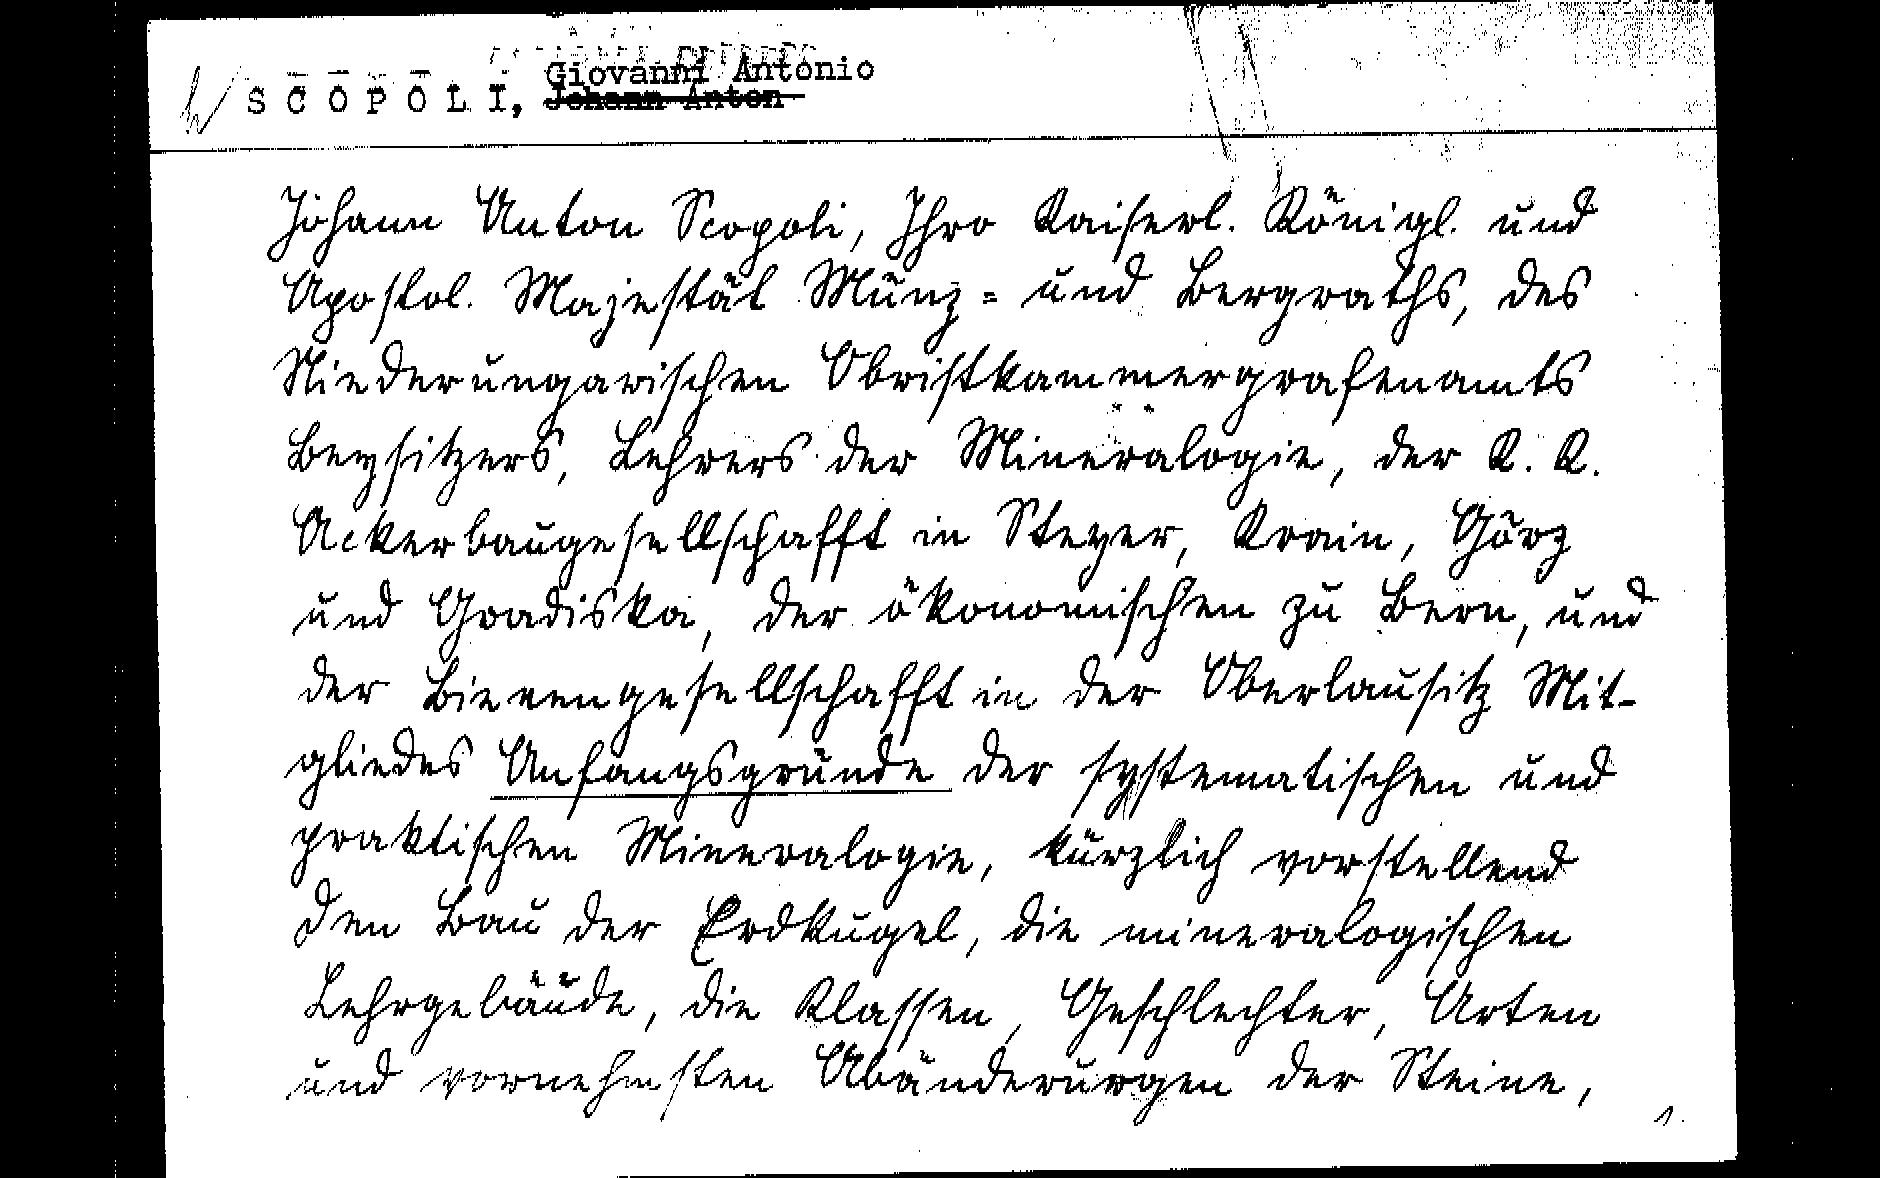 Giovanni Antonio
SCOPOLI, Johann Anton
Johann Anton Scopoli, Ihro Kaiserl. Königl. und
Apostol. Majestät Münz- und Bergraths, des
Niederungarischen Obristkammergrafenamts
Beysitzers, Lehrers der Mineralogie, der K. K.
Ackerbaugesellschafft in Steyer, Krain, Görz
und Gradiska, der ökonomischen zu Bern, und
der Bienengesellschafft in der Oberlausitz Mit-
gliedes Anfangsgründe der systematischen und
praktischen Mineralogie, kürzlich vorstellend
den Bau der Erdkugel, die mineralogischen
Lehrgebäude, die Klassen, Geschlechter, Arten
und vornehmsten Abänderungen der Steine,
1.